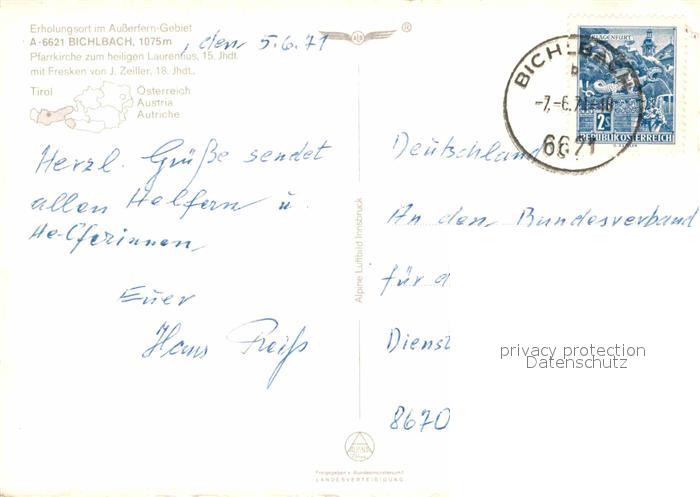 Erholungsort im Außerfern-Gebiet
A-6621 BICHLBACH, 1075m
, den 5.6.71
Pfarrkirche zum heiligen Laurentius, 15. Jhdt.
mit Fresken von J. Zeiller, 18. Jhdt.
Tirol
Österreich
Austria
Autriche
Herzl. Grüße sendet
allen Helfern u.
Helferinnen
Euer
Hans
Alpine Luftbild Innsbruck
ALPINE
Freigegeben v. Bundesministerium f.
LANDESVERTEIDIGUNG
®
KLAGENFURT
2S
REPUBLIK ÖSTERREICH
BICHLBACH
b
-7.-6.71-18
6621
Deutschland
An den Bundesverband
für d
Dienst
8670
privacy protection
Datenschutz